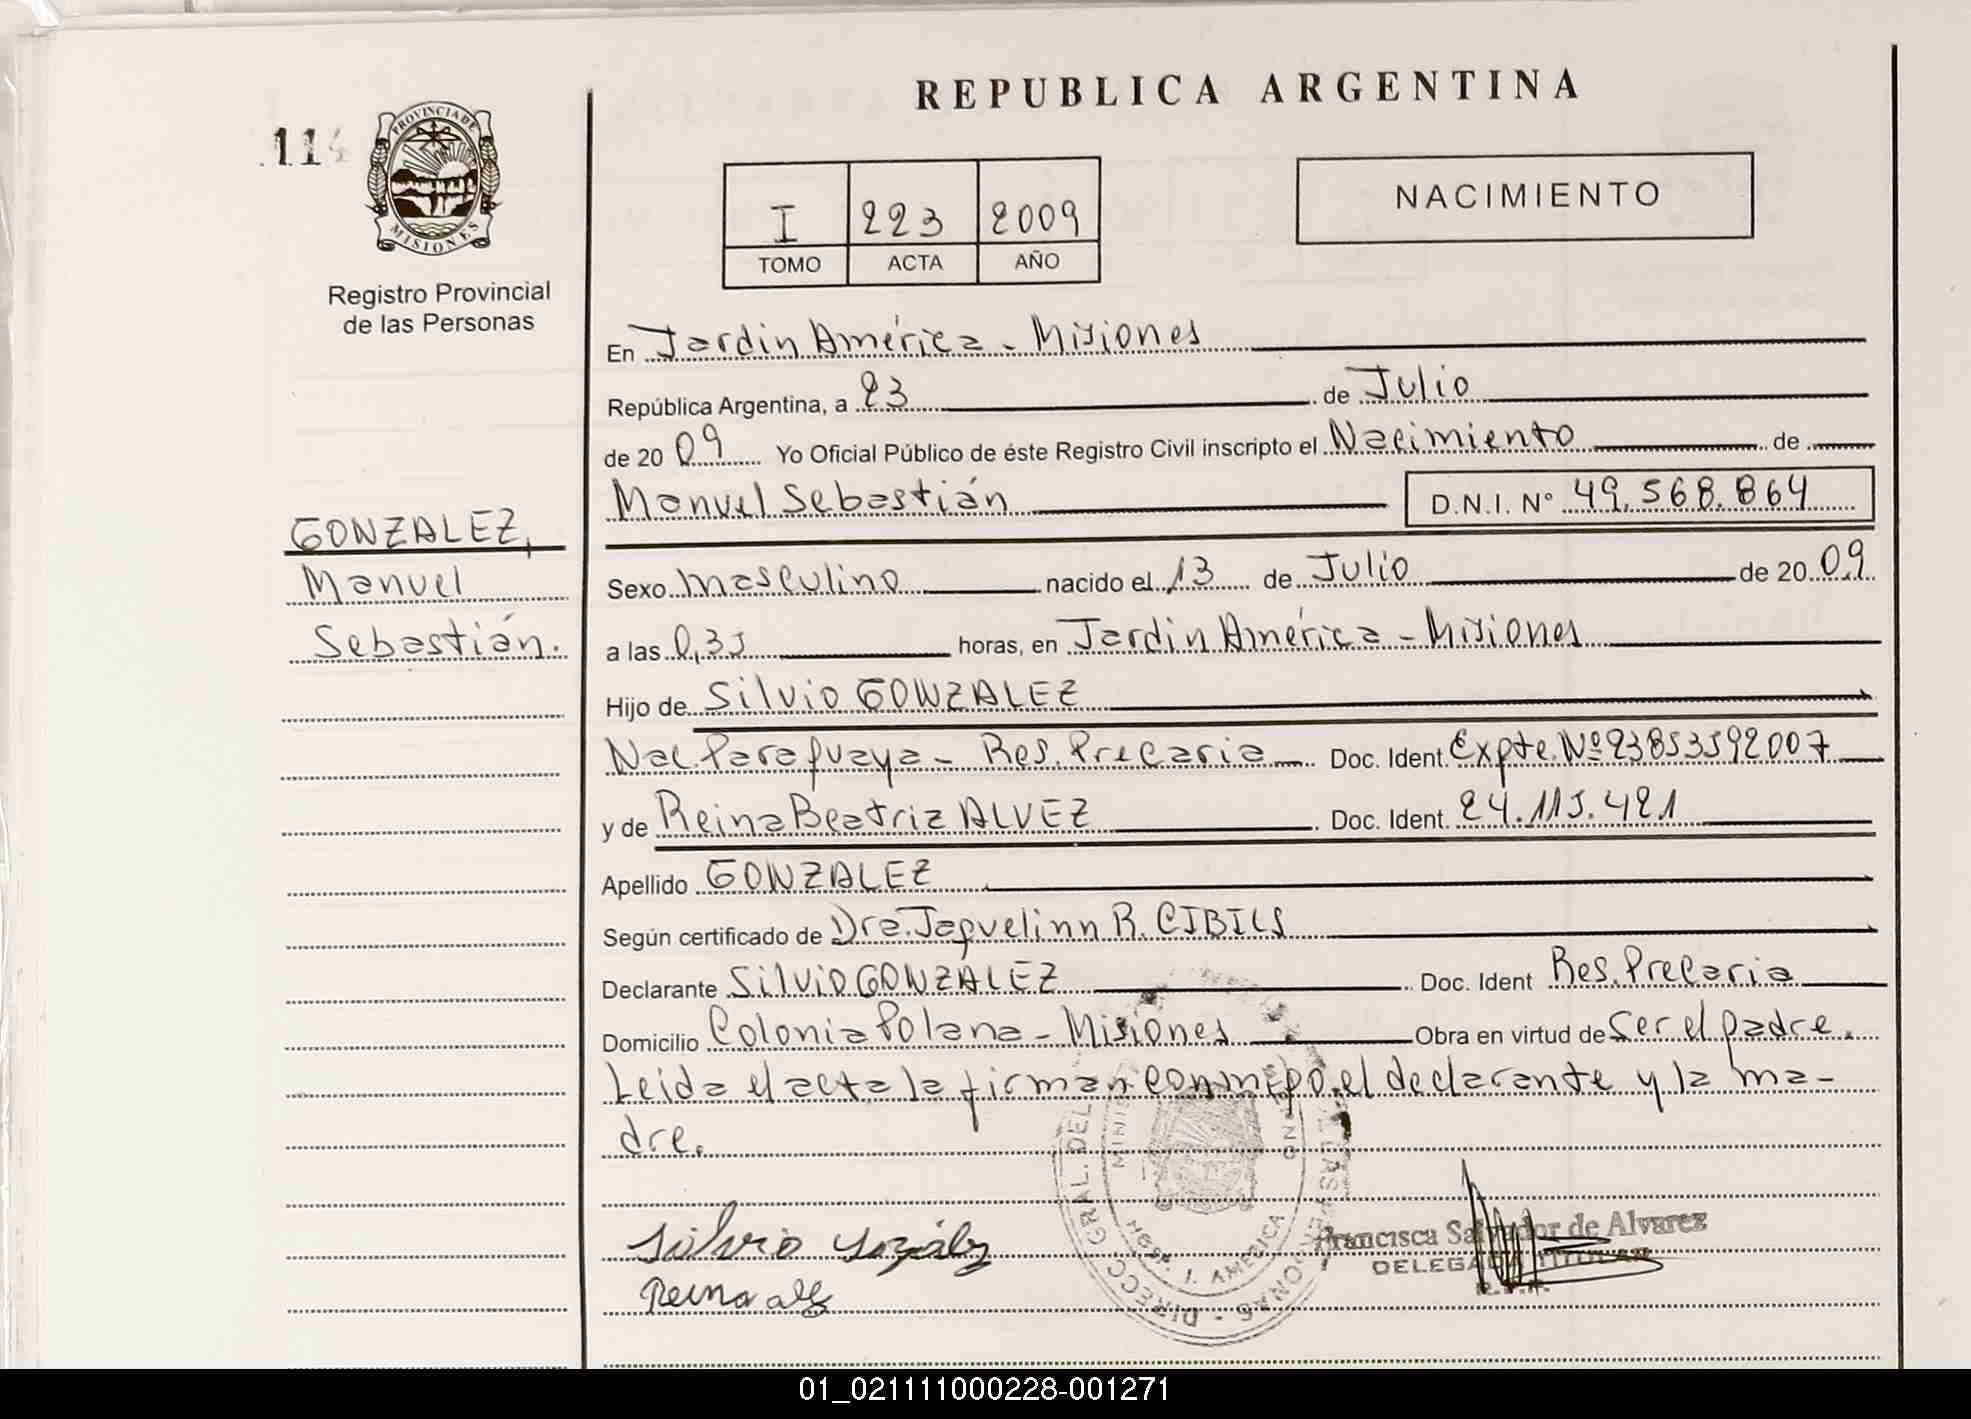 REPUBLICA ARGENTINA
114
PROVINCIA DE
MISIONES
Registro Provincial
de las Personas
I 223 2009
TOMO ACTA AÑO
NACIMIENTO
En Jardin América - Misiones
República Argentina, a 23 de Julio
de 20 09 Yo Oficial Público de éste Registro Civil inscripto el Nacimiento de
Manuel Sebastián D.N.I. Nº 49.568.864
GONZALEZ,
Manuel
Sebastián.
Sexo masculino nacido el 13 de Julio de 20 09
a las 0,35 horas, en Jardin América - Misiones
Hijo de Silvio GONZALEZ
Nac. Paraguaya - Res. Precaria Doc. Ident. Expte. Nº 23853592007
y de Reina Beatriz ALVEZ Doc. Ident. 24.115.421
Apellido GONZALEZ
Según certificado de Dra. Jaquelinn R. CIBILS
Declarante Silvio GONZALEZ Doc. Ident Res. Precaria
Domicilio Colonia Polana - Misiones Obra en virtud de Ser el padre.
Leida el acta la firman conmigo, el declarante y la ma-
dre.
Francisca Salvador de Alvarez
DELEGADA TITULAR
R.P.P.
DIRECC. GRAL. DEL
HOSP. J. AMERICA
01_021111000228-001271